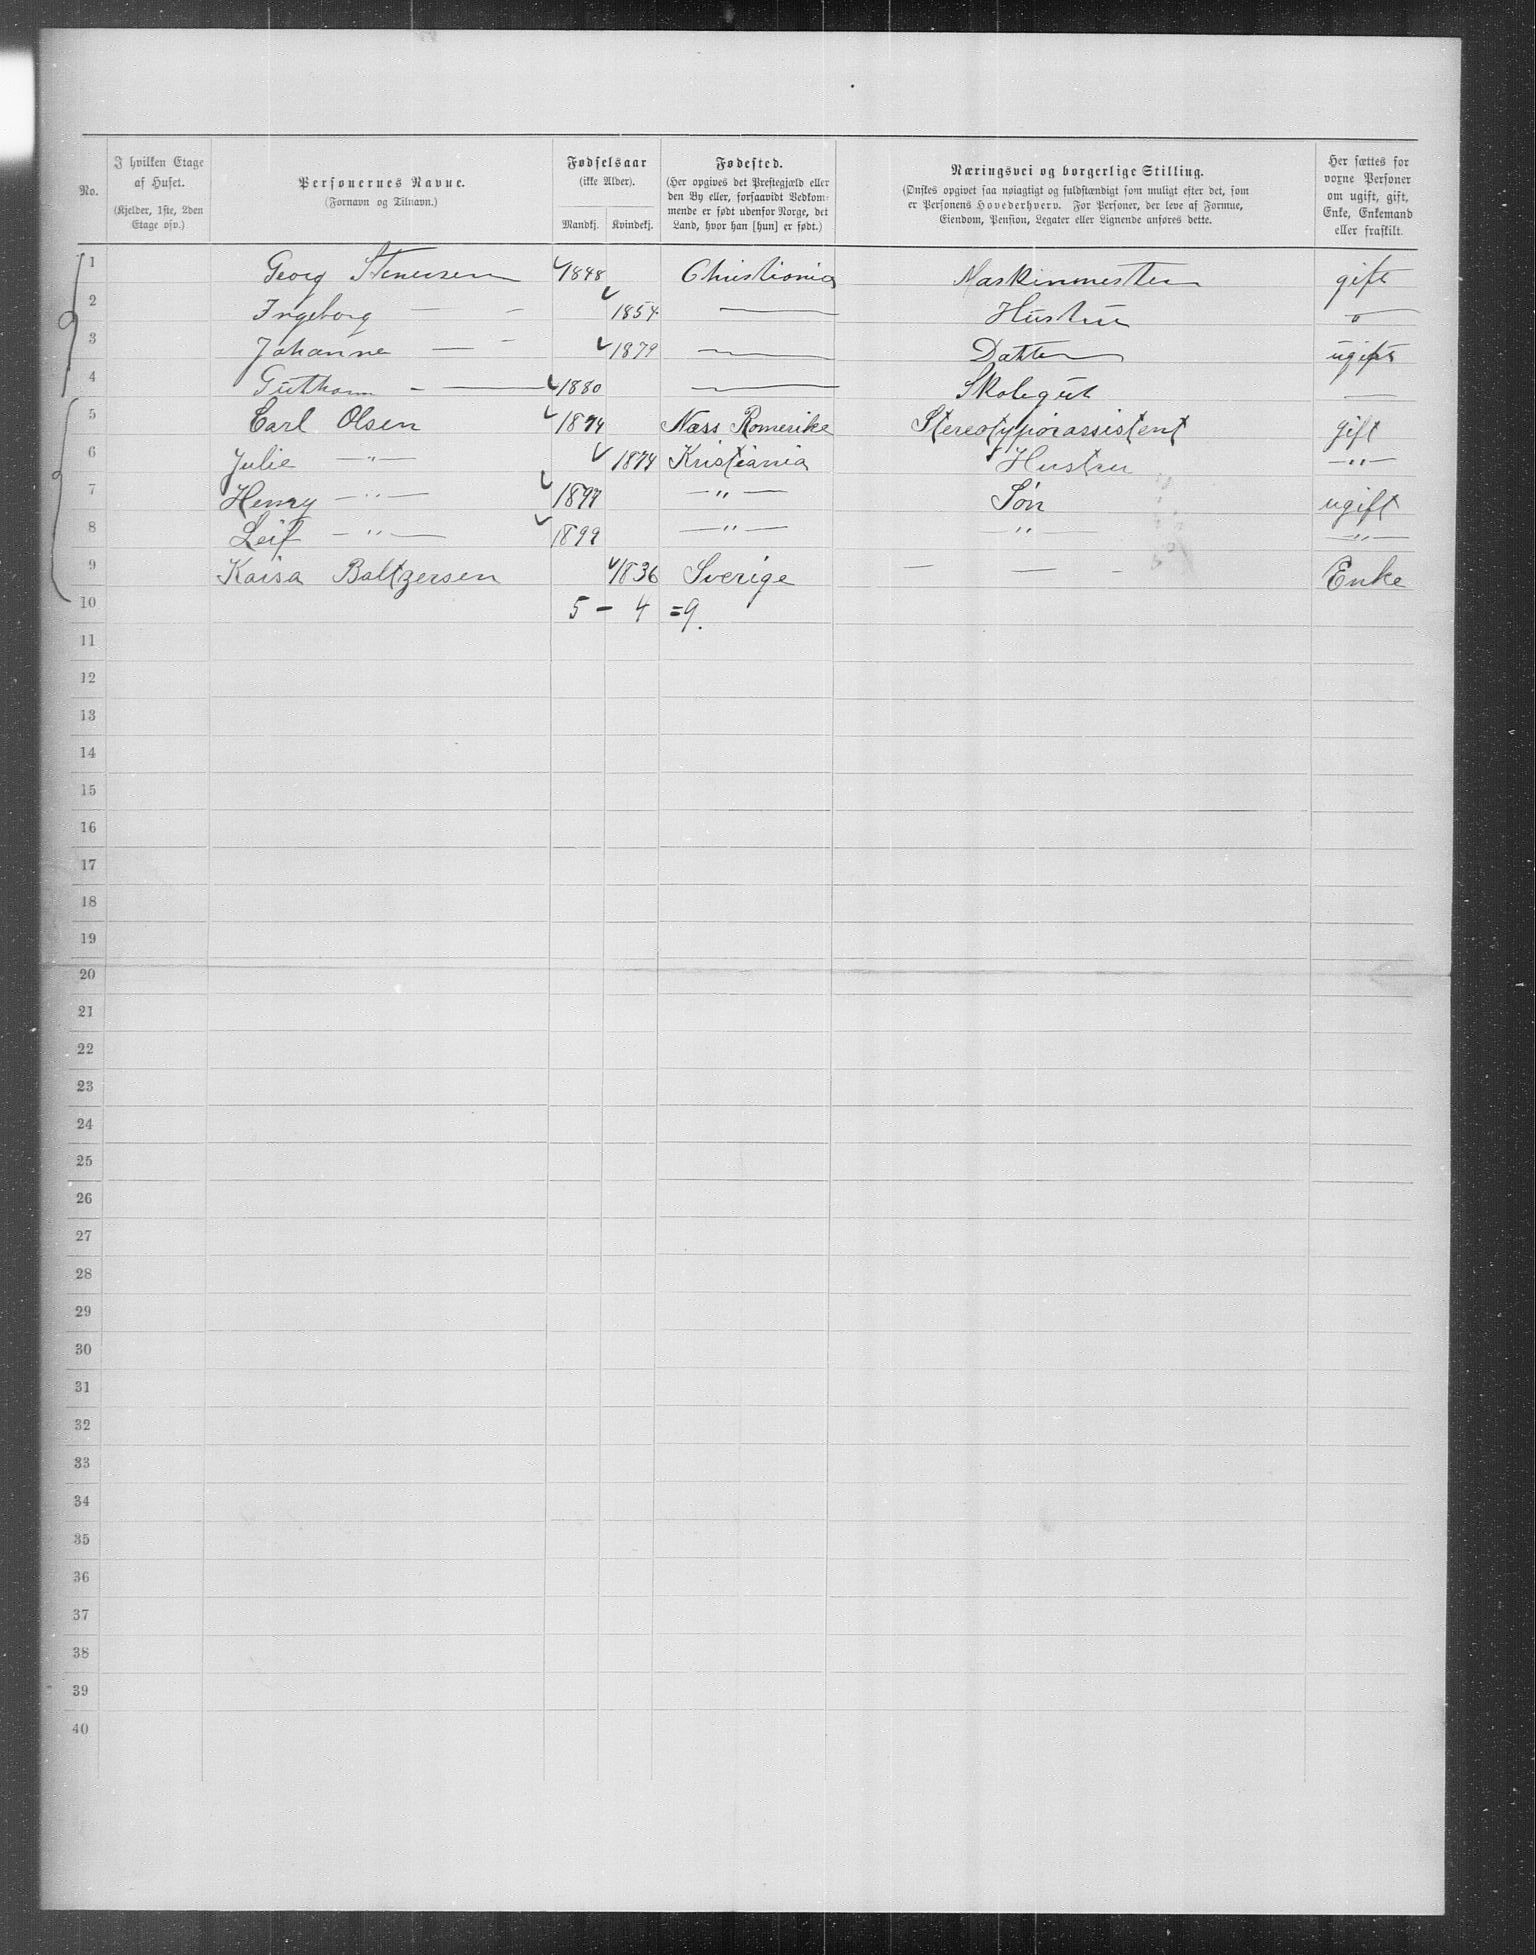 No.
I hvilken Etage
af Huset.
(Kjelder, 1ste, 2den
Etage osv.)
Personernes Navne.
(Fornavn og Tilnavn.)
Fødselsaar
(ikke Alder).
Mandkj. Kvindekj.
Fødested.
(Her opgives det Prestegjæld eller
den By eller, forsaavidt Vedkom-
mende er født udenfor Norge, det
Land, hvor han [hun] er født.)
Næringsvei og borgerlige Stilling.
(Ønskes opgivet saa nøiagtigt og fuldstændigt som muligt efter det, som
er Personens Hovederhverv. For Personer, der leve af Formue,
Eiendom, Pension, Legater eller Lignende anføres dette.
Her sættes for
voxne Personer
om ugift, gift,
Enke, Enkemand
eller fraskilt.
1 Georg Stenersen 1848 Christiania Maskinmester gift
2 Ingeborg — - 1854 — Hustru "
3 Johanne — - 1879 — Datter ugift
4 Guthorm - — 1880 — Skolegut —
5 Carl Olsen 1874 Næs Romerike Stereotypiørassistent gift
6 Julie —"— 1874 Kristiania Hustru —"—
7 Henry —"— 1897 —"— Søn ugift
8 Leif —"— 1899 —"— —"— —"—
9 Kaisa Baltzersen 1836 Sverige — — - Enke
10 5 — 4 = 9.
11
12
13
14
15
16
17
18
19
20
21
22
23
24
25
26
27
28
29
30
31
32
33
34
35
36
37
38
39
40